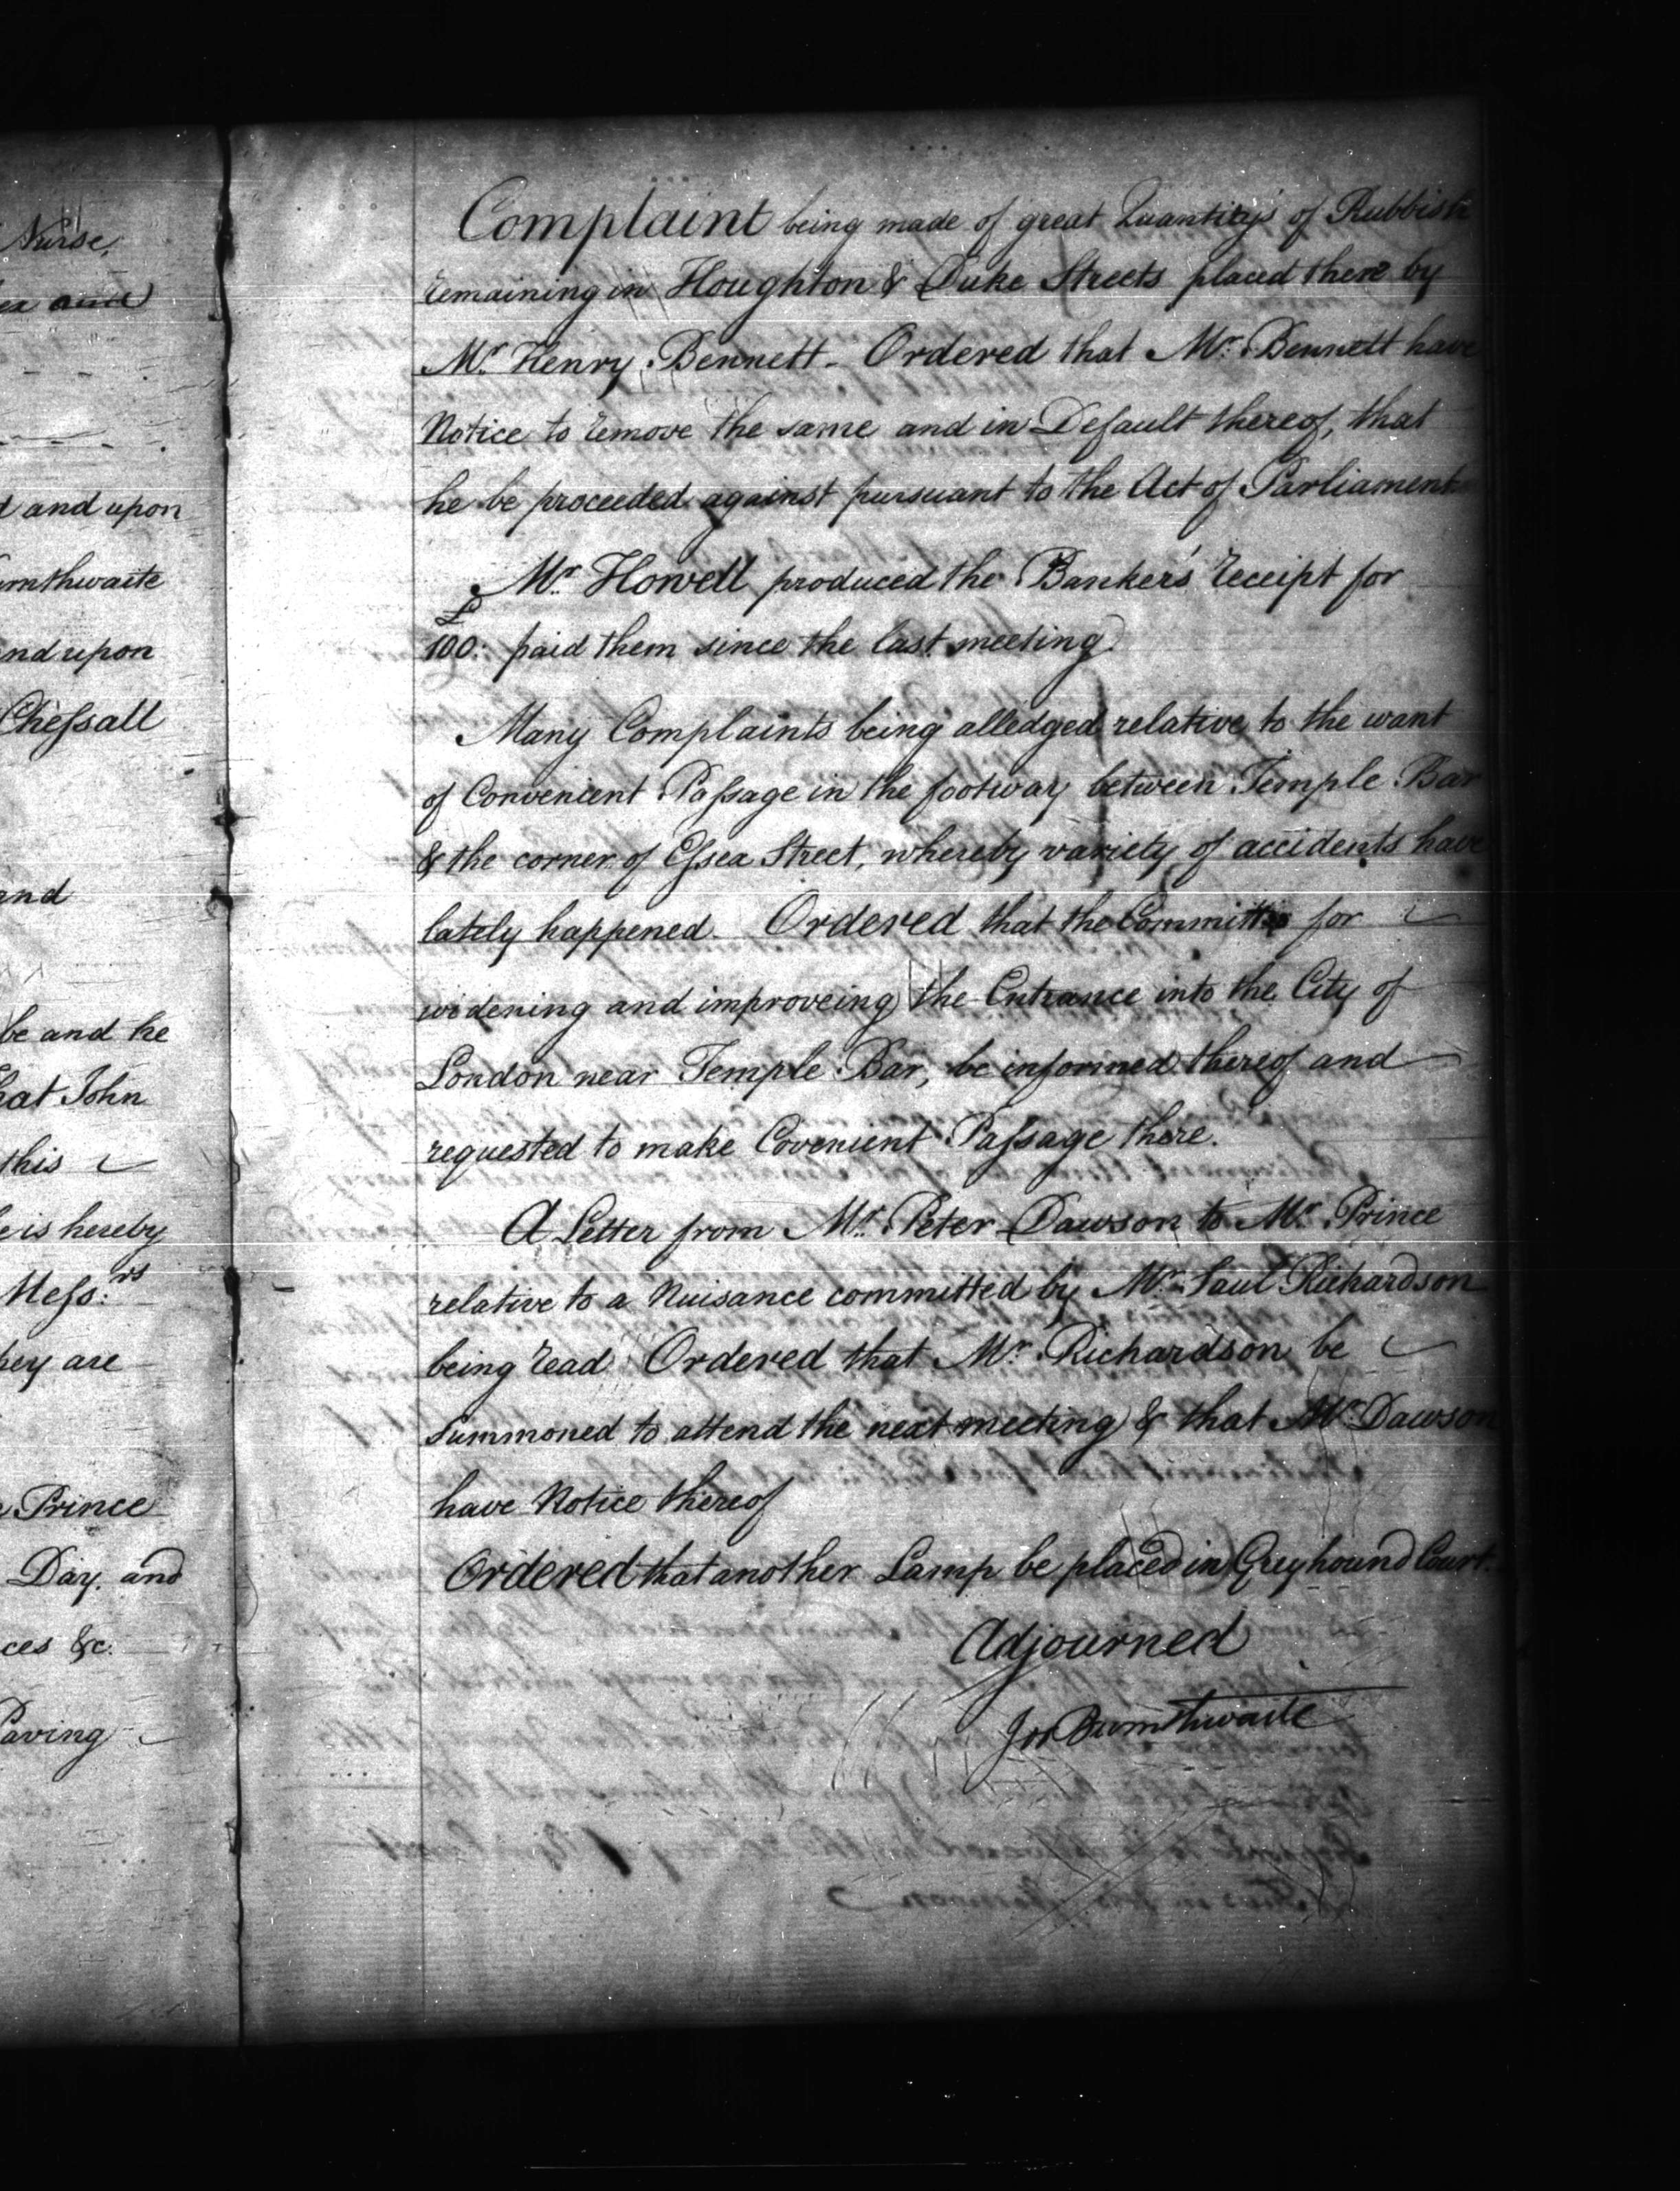 Nurse,
and
d and upon
mthwaite
nd upon
Chessall
and
be and he
hat John
this
e is hereby
Mess:rs
hey are
Prince
Day. and
ces &c.
Paving
Complaint being made of great Quantity's of Rubbish
remaining in Houghton & Duke Streets placed there by
Mr. Henry Bennett. Ordered that Mr. Bennett have
Notice to remove the same and in Default thereof, that
he be proceeded against pursuant to the Act of Parliament
Mr. Howell produced the Banker's receipt for
£
100: paid them since the last meeting.
Many Complaints being alledged relative to the want
of Convenient Passage in the footway between Temple Bar
& the corner of Essex Street, whereby variety of accidents have
lately happened. Ordered that the Committee for
widening and improveing the Entrance into the City of
London near Temple Bar, be informed thereof and
requested to make Covenient Passage there.
A Letter from Mr. Peter Dawson to Mr. Prince
relative to a Nuisance committed by Mr. Saul Richardson
being read Ordered that Mr. Richardson be
summoned to attend the next meeting & that Mr. Dawson
have Notice thereof
Ordered that another Lamp be placed in Greyhound Court.
Adjourned
Jos Burnthwaite